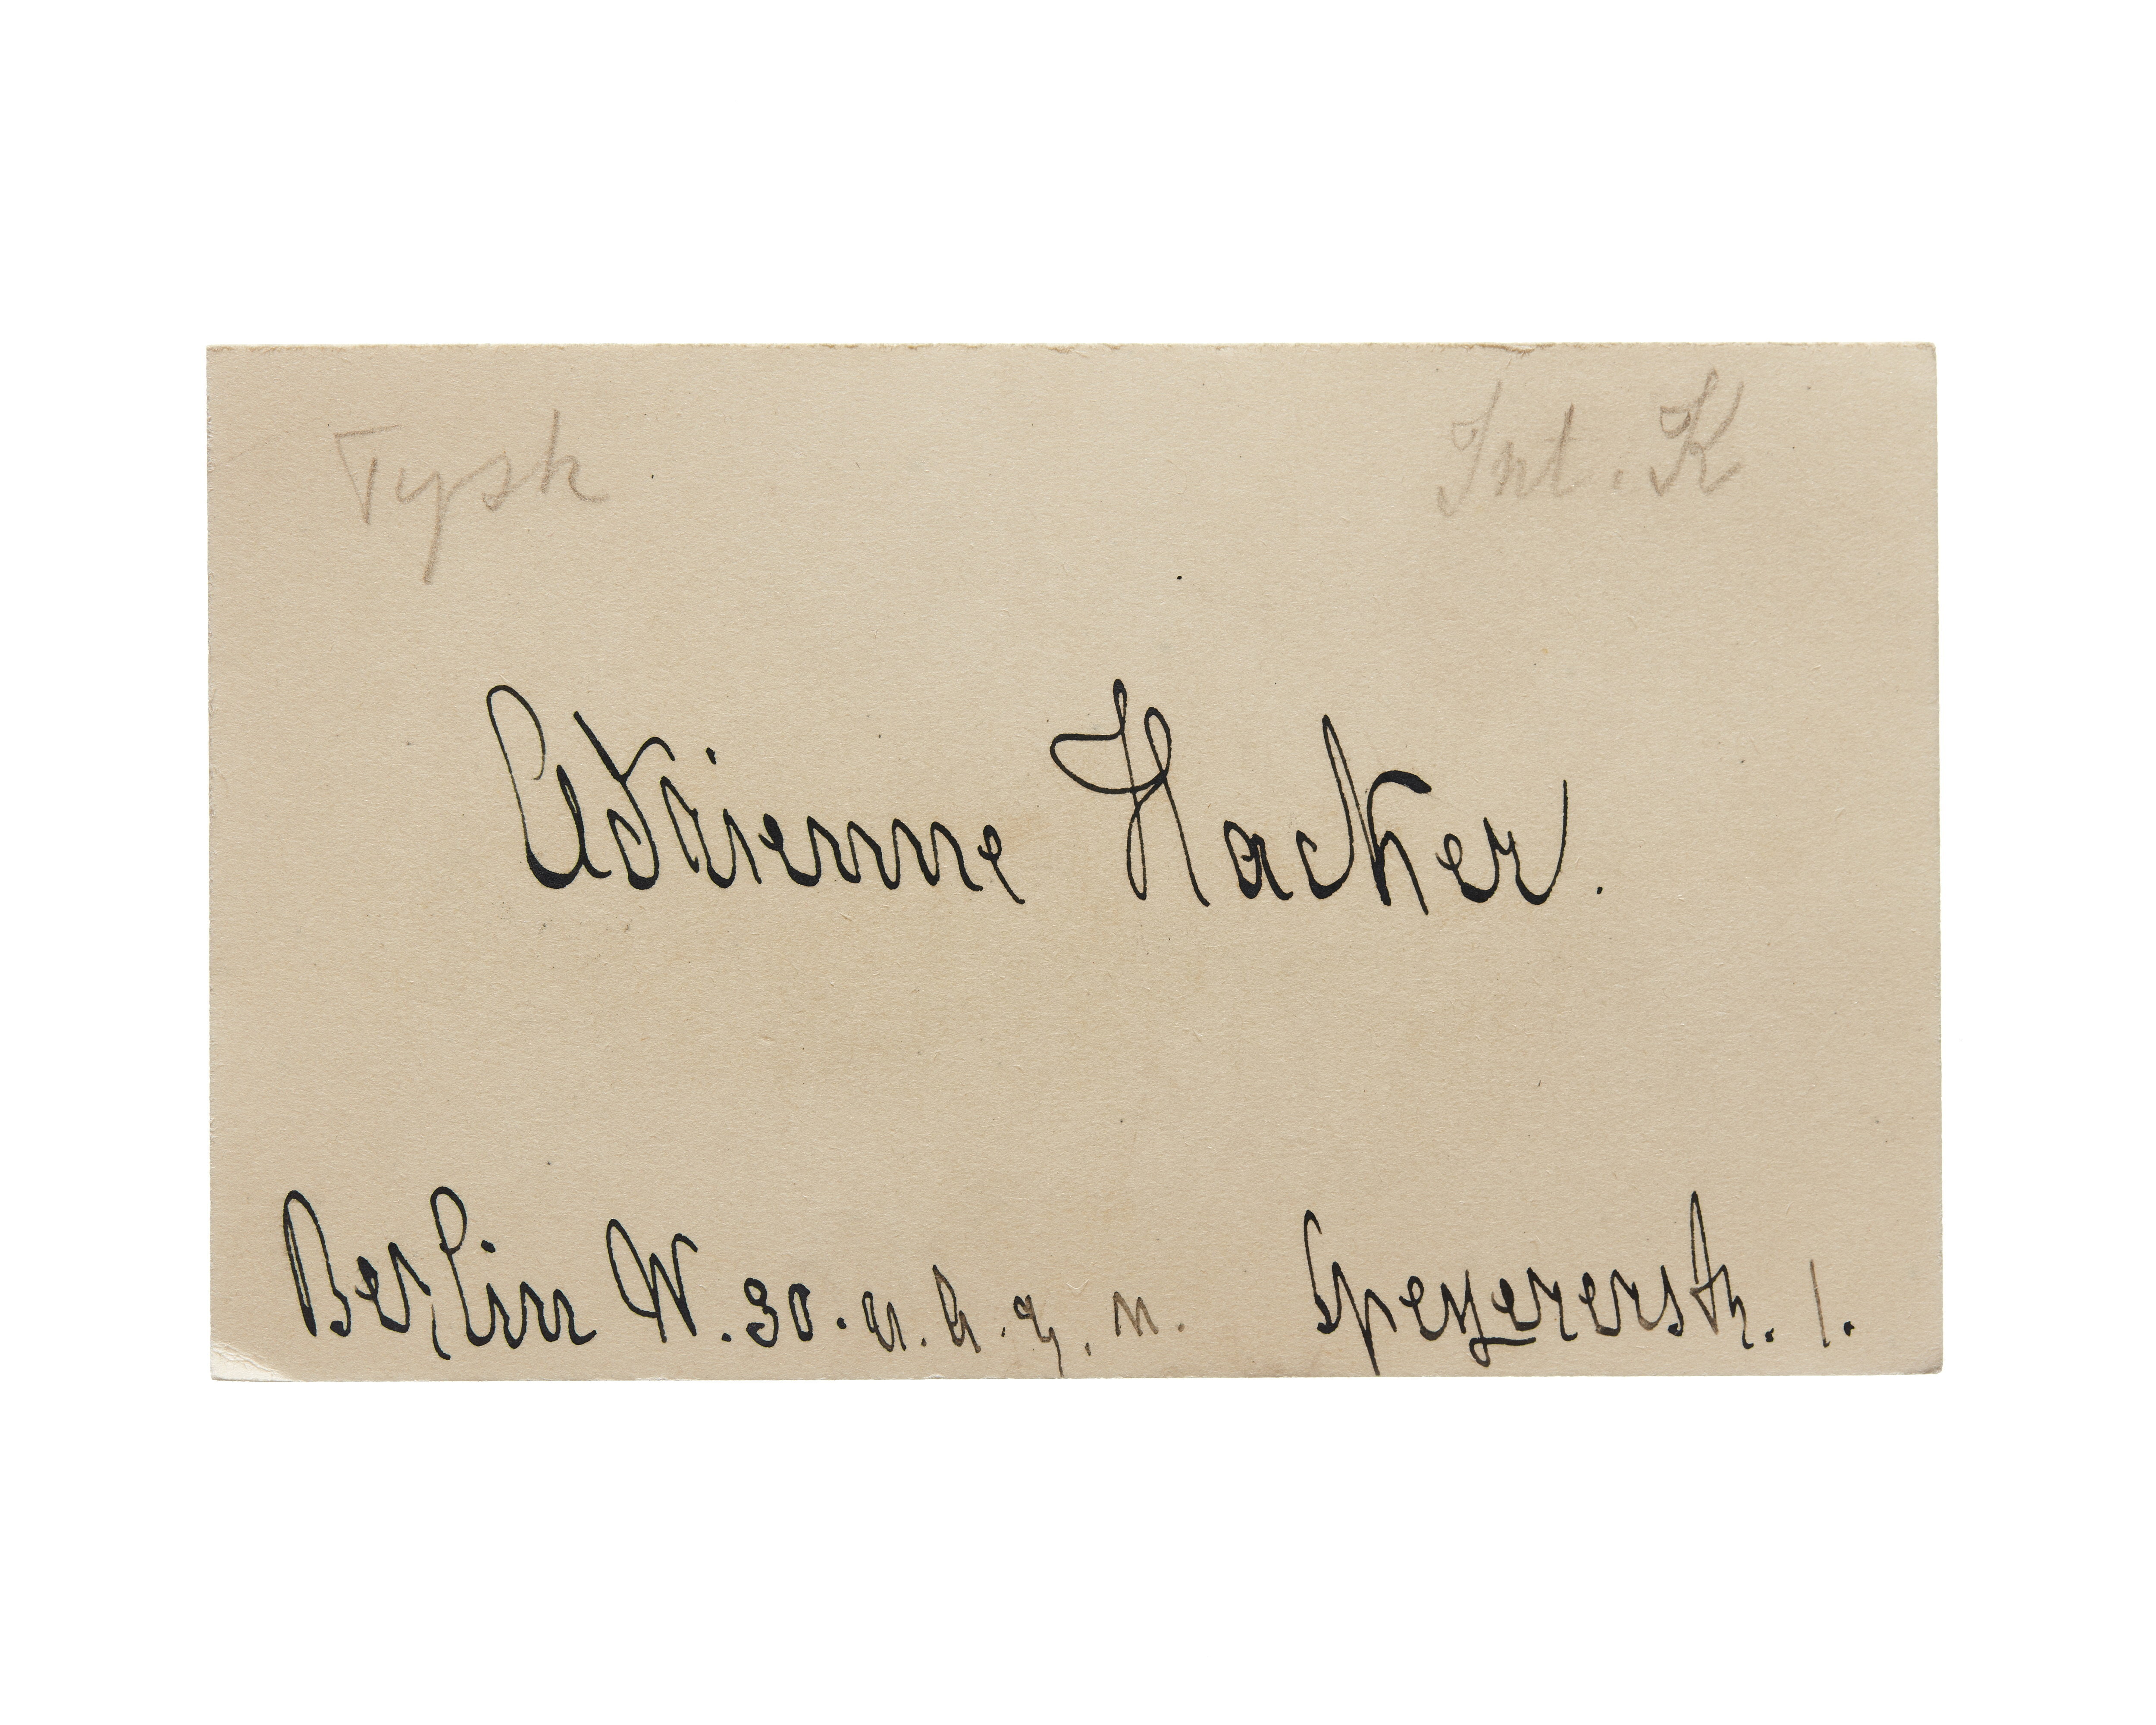 Tysk Int. K
Adrienne Hacker.
Berlin W. 30. Speyererstr. 1.